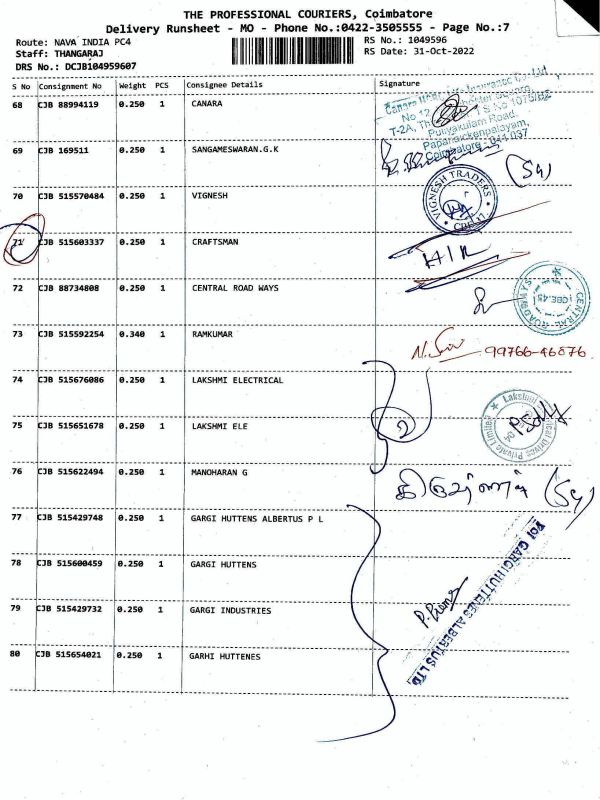 THE PROFESSIONAL COURIERS, Coimbatore
Delivery Runsheet - MO - Phone No.:0422-3505555 - Page No.:7
Route: NAVA INDIA PC4
Staff: THANGARAJ
DRS No.: DCJB104959607
RS No.: 1049596
RS Date: 31-Oct-2022
S No Consignment No Weight PCS Consignee Details Signature
68 CJB 88994119 0.250 1 CANARA
Insurance Co. Ltd
No 12
T-2A, S No 1075/B2
Puliyakulam Road,
Papanaickenpalayam,
Coimbatore - 641 037
69 CJB 169511 0.250 1 SANGAMESWARAN.G.K
70 CJB 515570484 0.250 1 VIGNESH
VIGNESH TRADERS
CBE-37
71 CJB 515603337 0.250 1 CRAFTSMAN
72 CJB 88734808 0.250 1 CENTRAL ROAD WAYS
CENTRAL ROADWAYS
73 CJB 515592254 0.340 1 RAMKUMAR
99766-46876
74 CJB 515676086 0.250 1 LAKSHMI ELECTRICAL
75 CJB 515651678 0.250 1 LAKSHMI ELE
Lakshmi Electrical Drives Private Limited
76 CJB 515622494 0.250 1 MANOHARAN G
77 CJB 515429748 0.250 1 GARGI HUTTENS ALBERTUS P L
78 CJB 515600459 0.250 1 GARGI HUTTENS
For GARGI HUTTENES ALBERTUS LTD
79 CJB 515429732 0.250 1 GARGI INDUSTRIES
80 CJB 515654021 0.250 1 GARHI HUTTENES